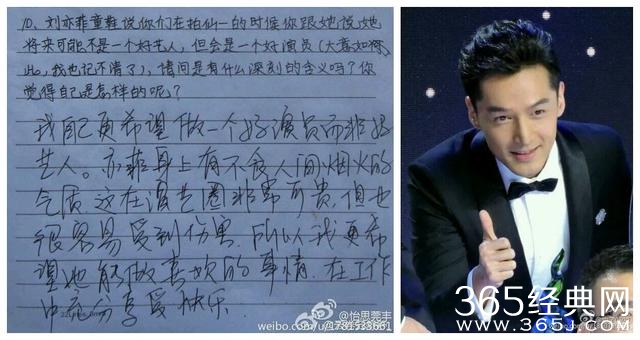 10、刘亦菲童鞋说你们在拍仙一的时候你跟她说,她
将来可能不是一个好艺人,但会是一个好演员(大意如
此,我也记不清了),请问是有什么深刻的含义吗?你
觉得自己是怎样的呢?
我自己更希望做一个好演员而非好
艺人。亦菲身上有不食人间烟火的
气质.这在演艺圈非常可贵.但也
很容易受到伤害.所以我更希
望她能做喜欢的事情.在工作
中去分享受快乐.
@怡里莞丰
weibo.com/u/
365经典网
www.365j.com